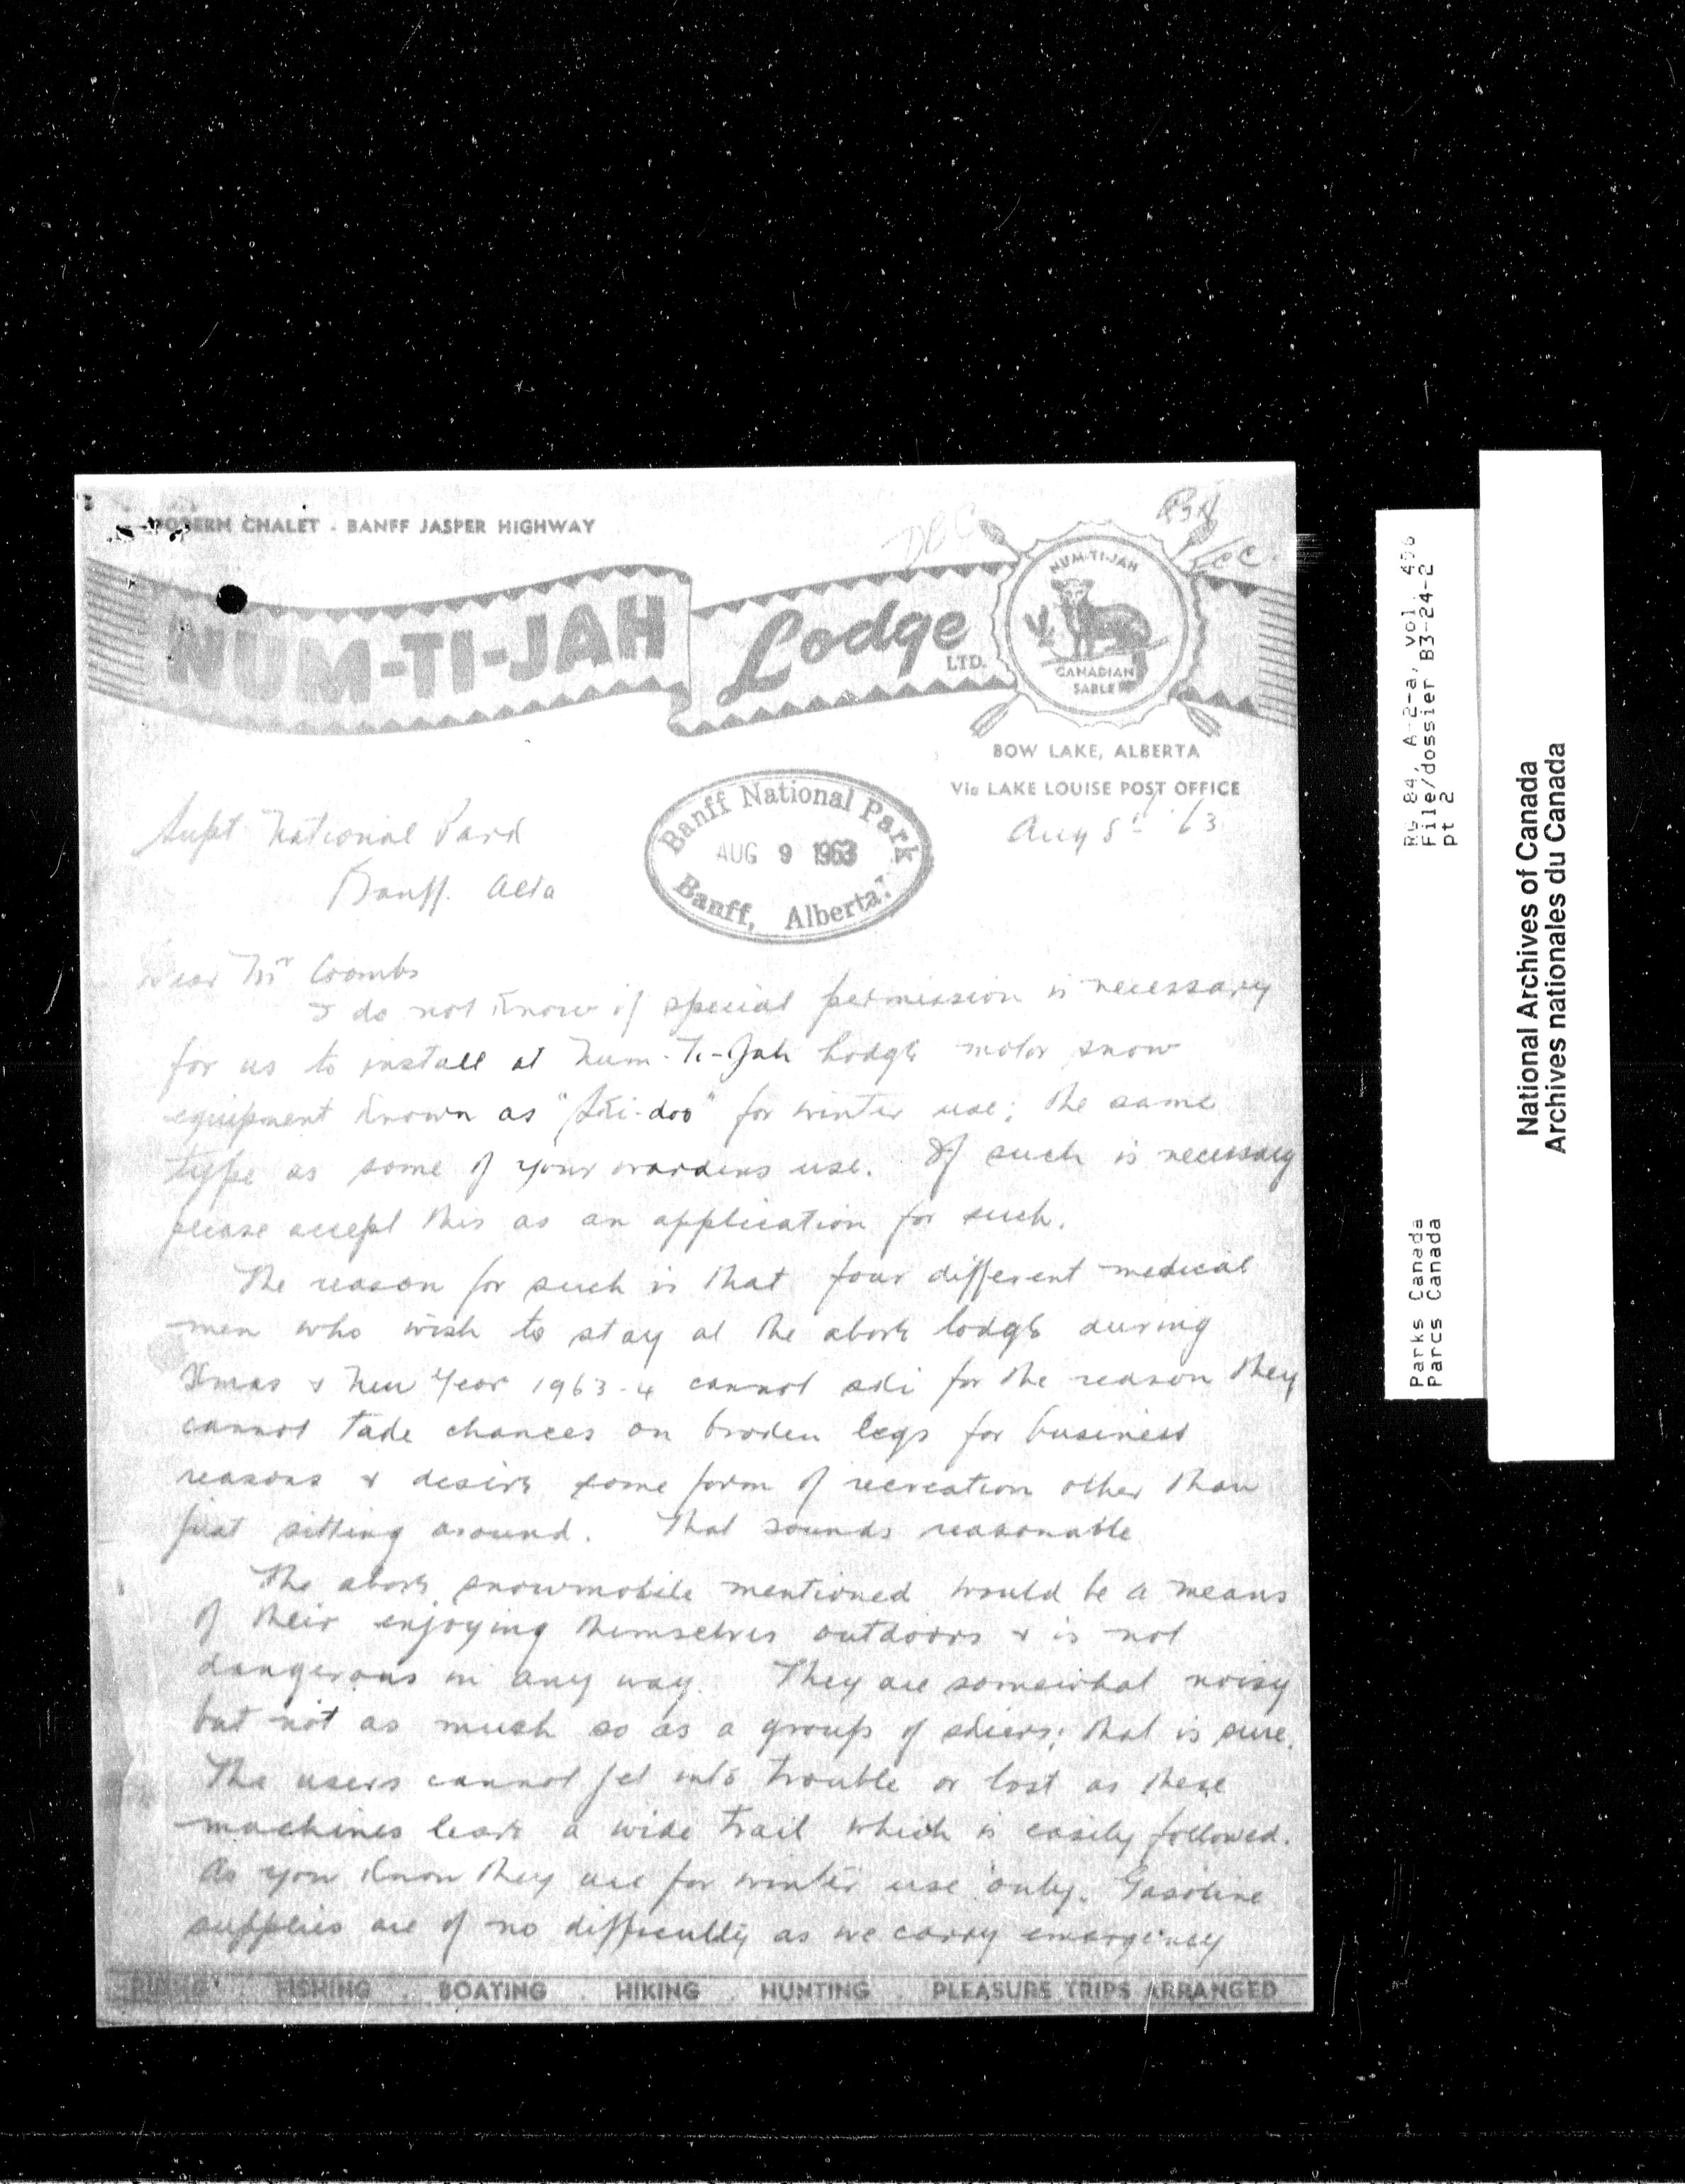 MODERN CHALET - BANFF JASPER HIGHWAY
NUM-TI-JAH Lodge LTD.
NUM-TI-JAH
CANADIAN
SABLE
BOW LAKE, ALBERTA
Via LAKE LOUISE POST OFFICE
Aug 5th '63
Supt National Park
Banff. Alta
Banff National Park
AUG 9 1963
Banff, Alberta.
Dear Mr Coombs
I do not know if special permission is necessary
for us to install at Num-Ti-Jah Lodge motor snow
equipment known as "Ski-doo" for winter use; the same
type as some of your wardens use. If such is necessary
please accept this as an application for such.
The reason for such is that four different medical
men who wish to stay at the above lodge during
Xmas & New Year 1963-4 cannot ski for the reason they
cannot take chances on broken legs for business
reasons & desire some form of recreation other than
just sitting around. That sounds reasonable
The above snowmobile mentioned would be a means
of their enjoying themselves outdoors & is not
dangerous in any way. They are somewhat noisy
but not as much so as a group of skiers; that is sure.
The users cannot get into trouble or lost as these
machines leave a wide trail which is easily followed.
As you know they are for winter use only. Gasoline
supplies are of no difficulty as we carry emergency
RIDING . FISHING . BOATING . HIKING . HUNTING . PLEASURE TRIPS ARRANGED
RG 84, A-2-a, vol. 406
File/dossier B3-24-2
pt 2
Parks Canada
Parcs Canada
National Archives of Canada
Archives nationales du Canada